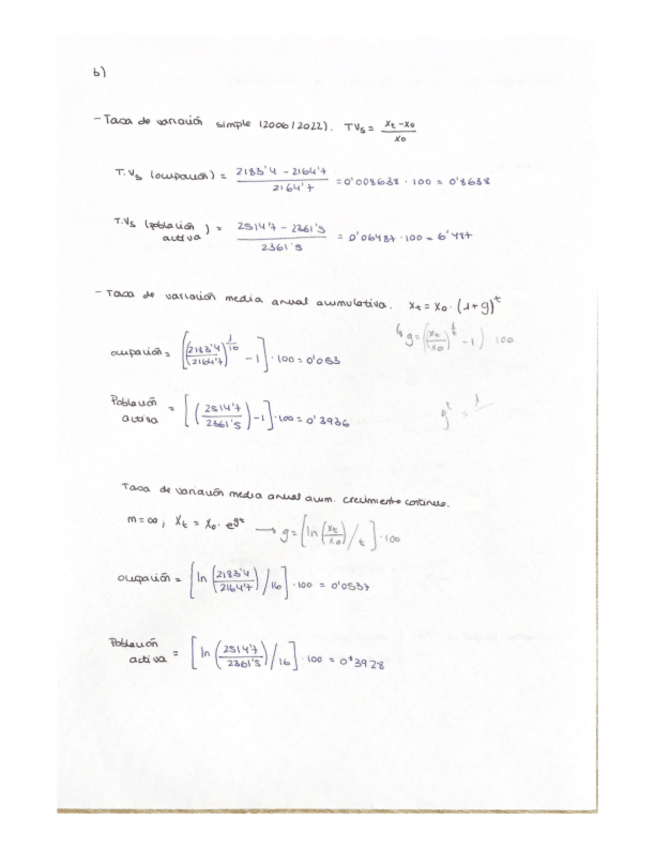 b)
- Tasa de variación simple (2006/2022). TVs = (xt - x0) / x0
T.Vs (ocupación) = (2183'4 - 2164'7) / 2164'7 = 0'008638 · 100 = 0'8638
T.Vs (población activa) = (2514'7 - 2361'5) / 2361'5 = 0'06487 · 100 = 6'487
- Tasa de variación media anual acumulativa. xt = x0 · (1+g)^t
↳ g = ((xt/x0)^(1/t) - 1) 100
ocupación = [(2183'4/2164'7)^(1/16) - 1] · 100 = 0'053
Población activa = [(2514'7/2361'5) - 1] · 100 = 0'3936
Tasa de variación media anual acum. crecimiento continuo.
m = ∞, Xt = X0 · e^gt → g = [ln(xt/x0) / t] · 100
ocupación = [ln(2183'4/2164'7) / 16] · 100 = 0'0537
Población activa = [ln(2514'7/2361'5) / 16] · 100 = 0'3928